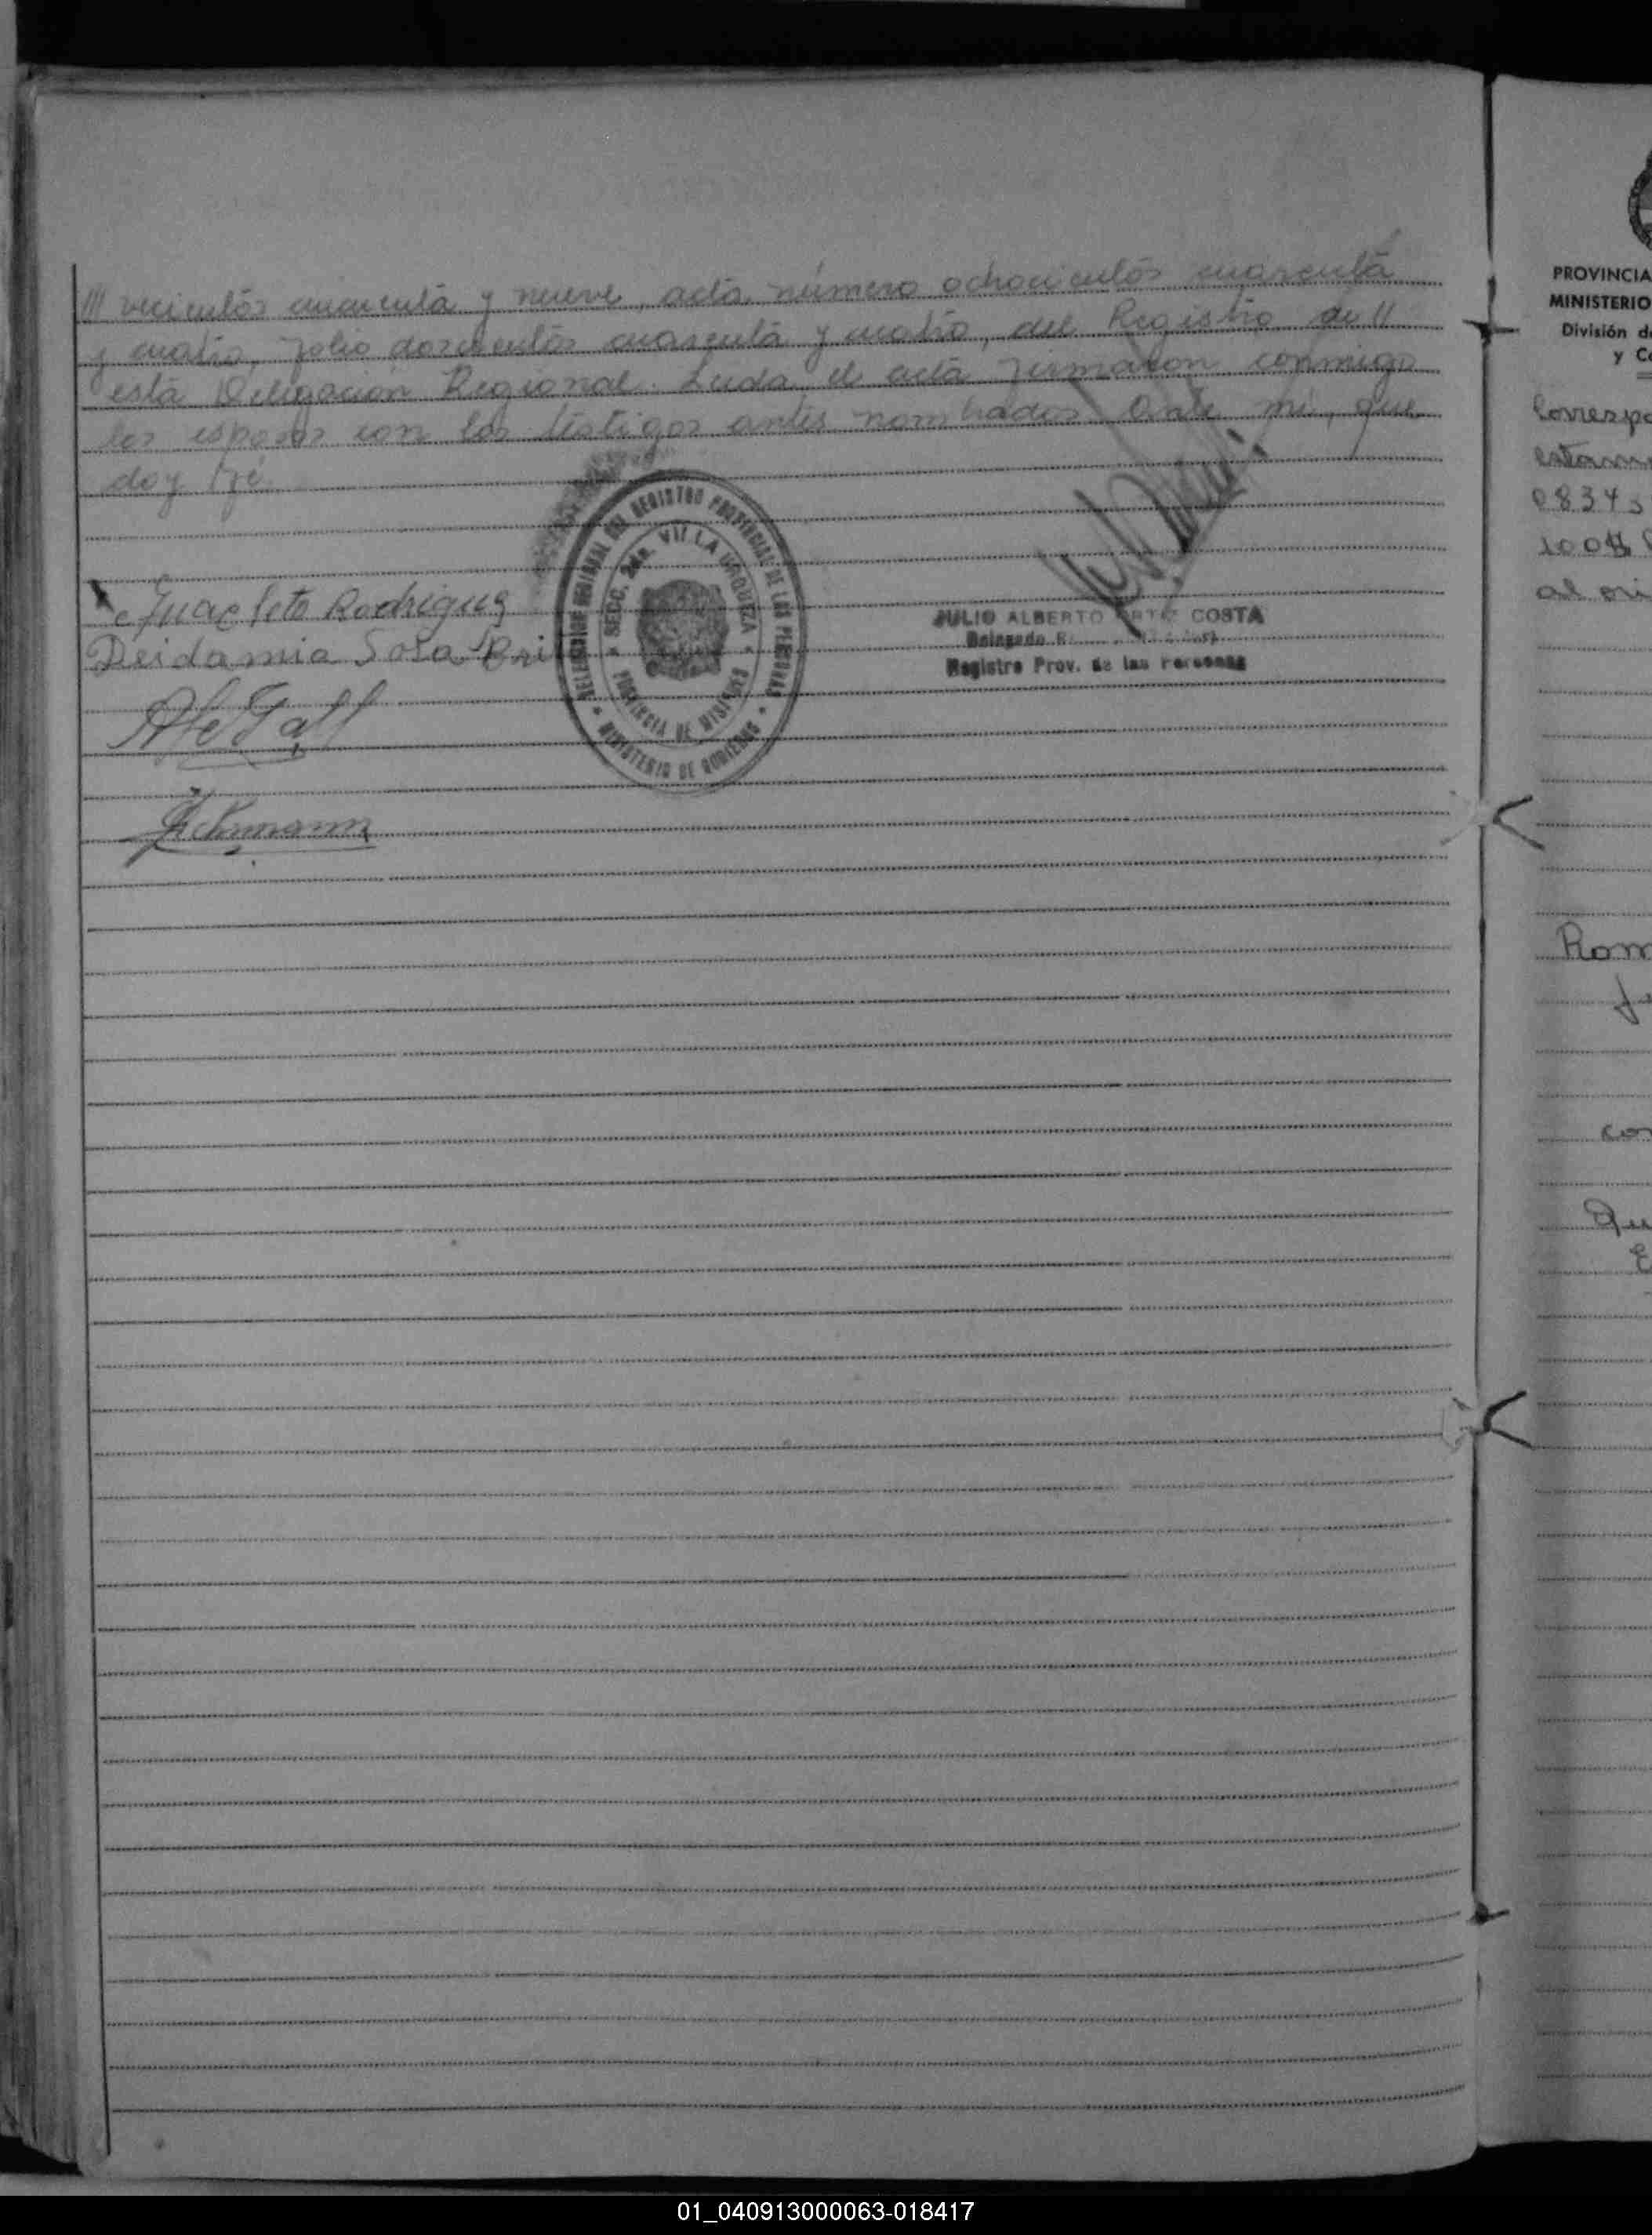 /// vecientos cuarenta y nueve, acta número ochocientos cuarenta
y cuatro, folio doscientos cuarenta y cuatro, del Registro de //
esta Delegación Regional. Leida el acta firmaron conmigo
los esposos con los testigos antes nombrados. Ante mi, que
doy fé.
Rodriguez
Deidamia Sosa Bri
DELEGACION REGIONAL DEL REGISTRO PROVINCIAL DE LAS PERSONAS
SECC. 2da. VILLA URQUIZA
PROVINCIA DE MISIONES
MINISTERIO DE GOBIERNO
JULIO ALBERTO COSTA
Delegado
Registro Prov. de las Personas
PROVINCIA
MINISTERIO
División d
y C
Corresp
0834
100
al ori
Rom
co
Qu
01_040913000063-018417